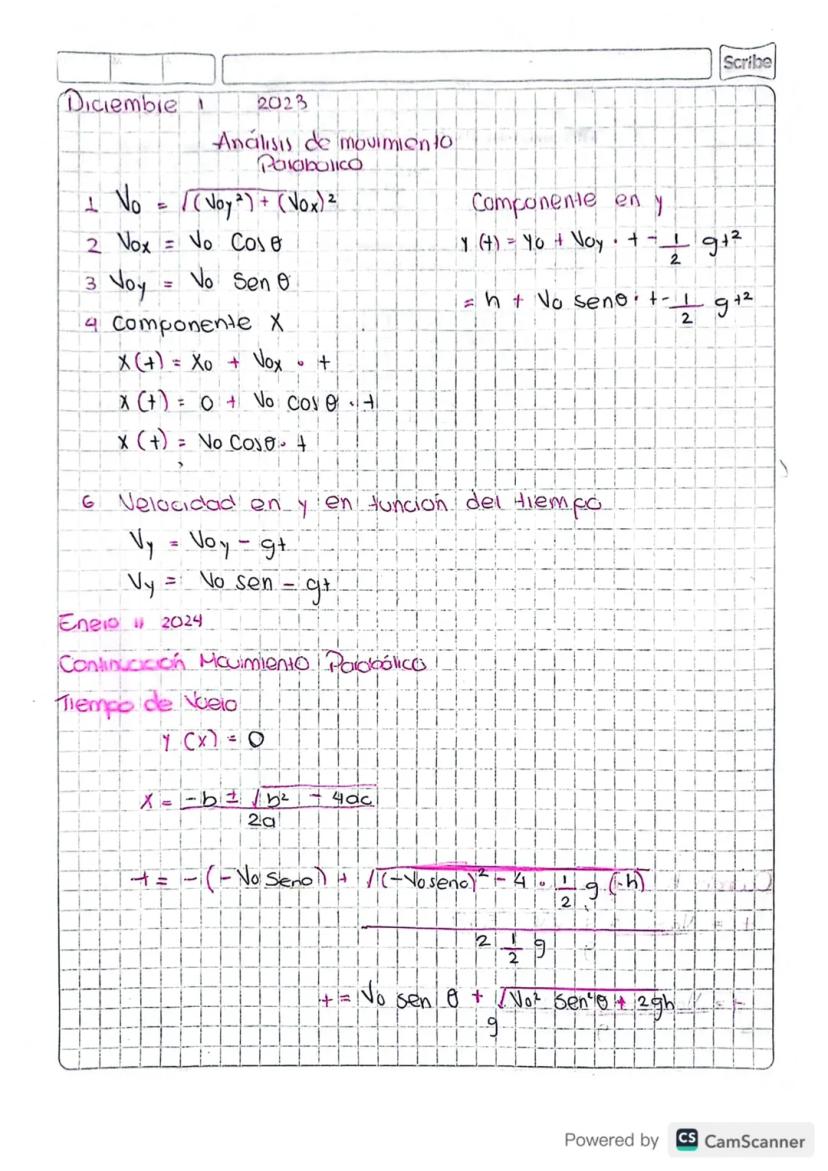 Scribe
Diciembre 1 2023
Análisis de movimiento
Parabolico
1 Vo = √(Voy²) + (Vox)²
2 Vox = Vo Cosθ
3 Voy = Vo Sen θ
4 Componente X
X(t) = Xo + Vox · t
X(t) = 0 + Vo Cos θ · t
X(t) = Vo Cosθ · t
Componente en y
Y (t) = Yo + Voy · t - 1/2 gt²
= h + Vo senθ · t - 1/2 gt²
6 Velocidad en y en función del tiempo
Vy = Voy - gt
Vy = Vo sen - gt
Enero 11 2024
Continuación Movimiento Parabólico
Tiempo de Vuelo
Y (x) = 0
X = -b ± √b² - 4ac / 2a
t = -(-Vo Senθ) + √(-Vo senθ)² - 4 · 1/2 g (-h) / 2 1/2 g
t = Vo sen θ + √Vo² Sen²θ + 2gh / g
Powered by CS CamScanner